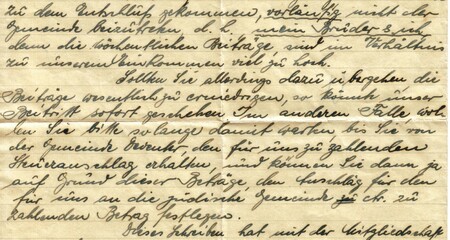 zu dem Entschluß gekommen, vorläufig nicht der
Gemeinde beizutreten, d. h. mein Bruder & ich,
denn die wöchentlichen Beiträge, sind im Verhältnis
zu unserem Einkommen viel zu hoch.
Sollten Sie allerdings dazu übergehen die
Beiträge wesentlich zu erniedrigen, so könnte unser
Beitritt sofort geschehen. Im anderen Falle, wol-
len Sie bitte so lange damit warten bis Sie von
der Gemeinde den für uns zu zahlenden
Steueranschlag erhalten und können Sie dann ja
auf Grund dieser Beträge, den Anschlag für den
für uns an die jüdische Gemeinde zu
zahlenden Betrag festlegen.
Dieses Schreiben hat mit der Mitgliedschaft